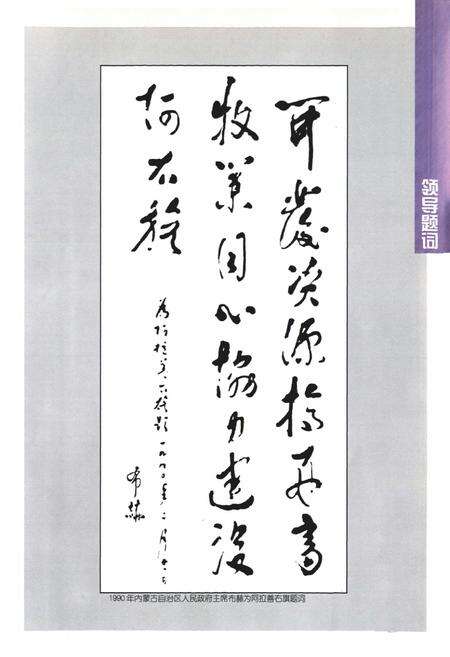 领导题词
开发资源搞好畜
牧业同心协力建设
阿右旗
为阿拉善右旗题 一九九〇年
布赫
1990年内蒙古自治区人民政府主席布赫为阿拉善右旗题词